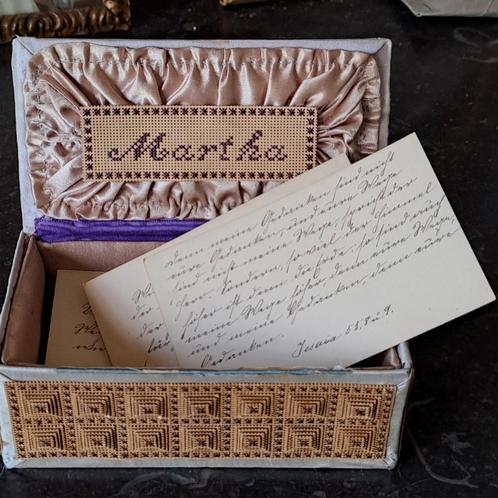 Martha
Denn meine Gedanken sind nicht
eure Gedanken, und eure Wege
sind nicht meine Wege, spricht der
Herr. Sondern, so viel der Himmel
höher ist denn die Erde, so sind auch
meine Wege höher, denn eure Wege,
und meine Gedanken, denn eure
Gedanken. Jesaia 55, 8 u. 9.